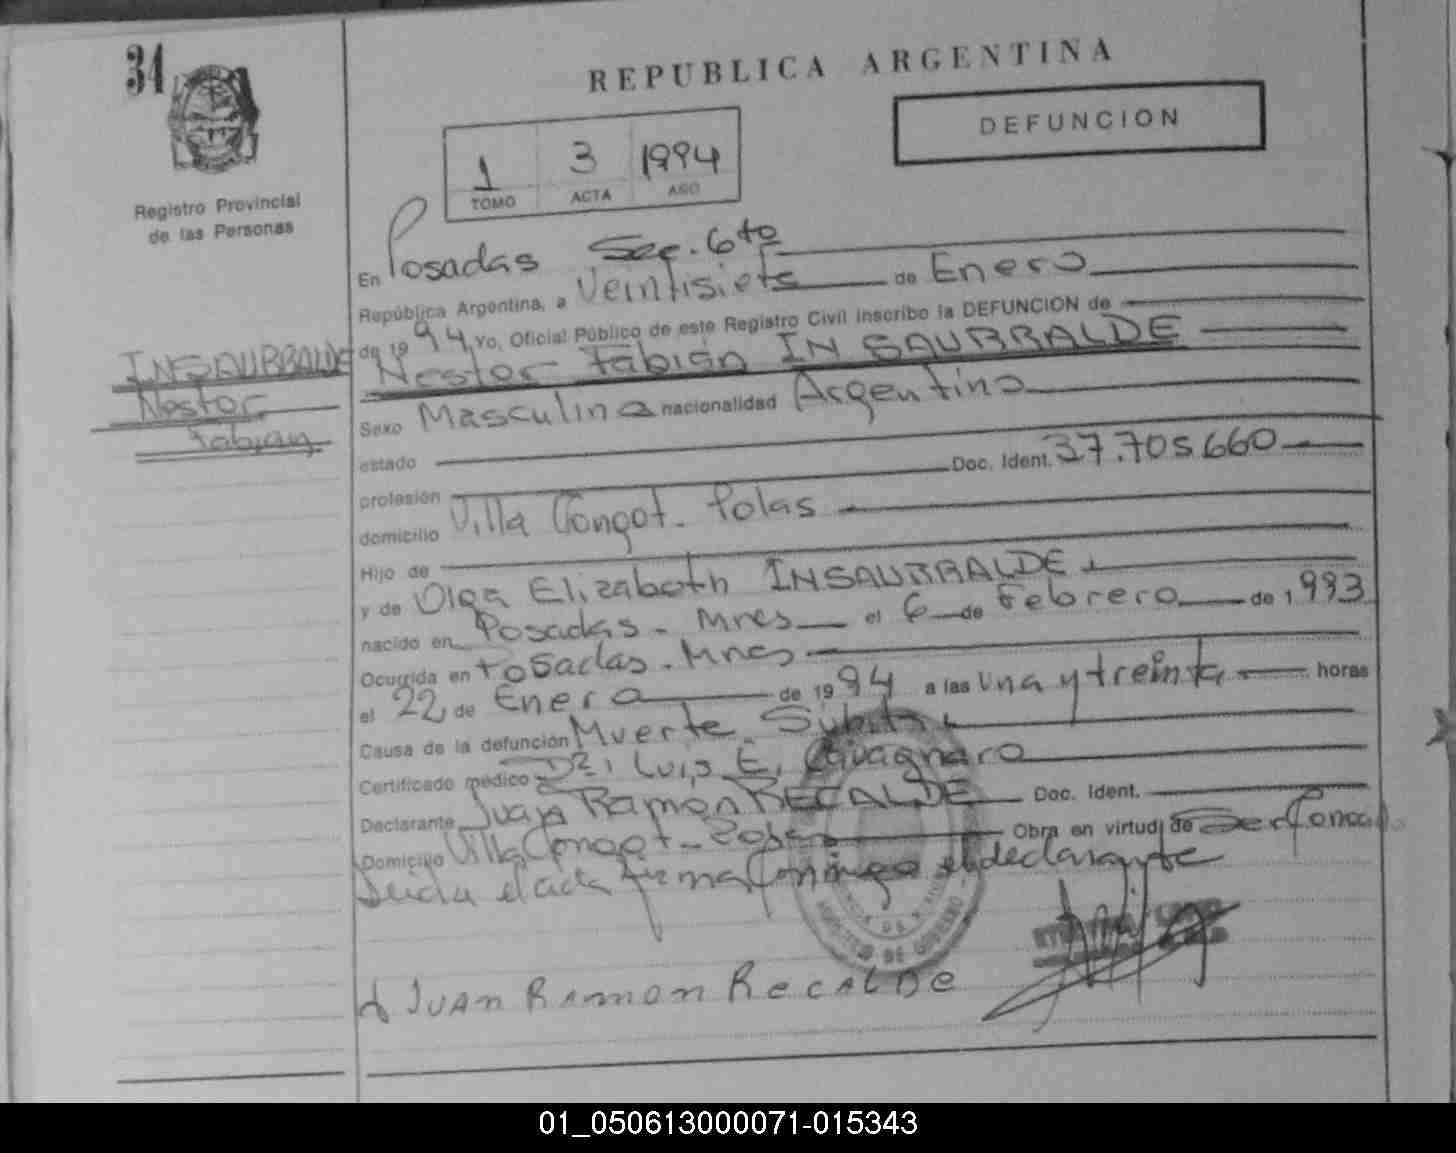 34
REPUBLICA ARGENTINA
DEFUNCION
1 3 1994
TOMO ACTA AÑO
Registro Provincial
de las Personas
En Posadas Sec. 6to
República Argentina, a Veintisiete de Enero
de 1994 Yo, Oficial Público de este Registro Civil inscribo la DEFUNCION de
INSAURRALDE
Nestor Fabián INSAURRALDE
Nestor
Fabian
Sexo Masculino nacionalidad Argentino
estado
Doc. Ident. 37.705.660
profesión
domicilio Villa Longot. Polas
Hijo de
y de Olga Elizabeth INSAURRALDE
nacido en Posadas. Mnes el 6 de Febrero de 1993
Ocurrida en Posadas. Mnes
el 22 de Enero de 1994 a las Una y treinta horas
Causa de la defunción Muerte Súbita
Certificado médico Dr. Luis E. Cavagnaro
Declarante Juan Ramón RECALDE Doc. Ident.
Domicilio Villa Longot. Obra en virtud de Ser
el acta firma conmigo el declarante
MINISTERIO DE GOBIERNO
JUAN RAMON RECALDE
01_050613000071-015343